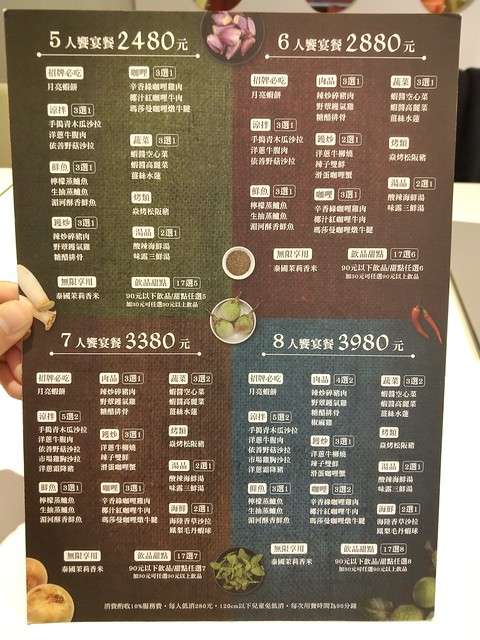 5人饗宴餐 2480元
招牌必吃
月亮蝦餅
涼拌 3選1
手搗青木瓜沙拉
洋蔥牛腹肉
依善野菇沙拉
鮮魚 3選1
檸檬蒸鱸魚
生抽蒸鱸魚
湄河酥香鮮魚
鑊炒 3選1
辣炒碎豬肉
野草鑊氣雞
糖醋排骨
無限享用
泰國茉莉香米
咖哩 3選1
辛香綠咖哩雞肉
椰汁紅咖哩牛肉
瑪莎曼咖哩燉牛腱
蔬菜 3選1
蝦醬空心菜
蝦醬高麗菜
薑絲水蓮
烤類
焱烤松阪豬
湯品 2選1
酸辣海鮮湯
味露三鮮湯
飲品甜點 17選5
90元以下飲品/甜點任選5
加30元可任選90元以上飲品
6人饗宴餐 2880元
招牌必吃
月亮蝦餅
涼拌 3選1
手搗青木瓜沙拉
洋蔥牛腹肉
依善野菇沙拉
鮮魚 3選1
檸檬蒸鱸魚
生抽蒸鱸魚
湄河酥香鮮魚
肉品 3選1
辣炒碎豬肉
野草鑊氣雞
糖醋排骨
鑊炒 2選1
洋蔥牛柳燒
辣子雙鮮
滑蛋咖哩蟹
咖哩 3選1
辛香綠咖哩雞肉
椰汁紅咖哩牛肉
瑪莎曼咖哩燉牛腱
蔬菜 3選1
蝦醬空心菜
蝦醬高麗菜
薑絲水蓮
烤類
焱烤松阪豬
湯品 2選1
酸辣海鮮湯
味露三鮮湯
無限享用
泰國茉莉香米
飲品甜點 17選6
90元以下飲品/甜點任選6
加30元可任選90元以上飲品
7人饗宴餐 3380元
招牌必吃
月亮蝦餅
涼拌 5選2
手搗青木瓜沙拉
洋蔥牛腹肉
依善野菇沙拉
市場雞胸沙拉
洋蔥霜降豬
鮮魚 3選1
檸檬蒸鱸魚
生抽蒸鱸魚
湄河酥香鮮魚
肉品 3選1
辣炒碎豬肉
野草鑊氣雞
糖醋排骨
鑊炒 3選1
洋蔥牛柳燒
辣子雙鮮
滑蛋咖哩蟹
咖哩 3選1
辛香綠咖哩雞肉
椰汁紅咖哩牛肉
瑪莎曼咖哩燉牛腱
蔬菜 3選2
蝦醬空心菜
蝦醬高麗菜
薑絲水蓮
烤類
焱烤松阪豬
湯品 2選1
酸辣海鮮湯
味露三鮮湯
海鮮 2選1
海陸香草沙拉
鳳梨毛丹蝦球
無限享用
泰國茉莉香米
飲品甜點 17選7
90元以下飲品/甜點任選7
加30元可任選90元以上飲品
8人饗宴餐 3980元
招牌必吃
月亮蝦餅
涼拌 5選2
手搗青木瓜沙拉
洋蔥牛腹肉
依善野菇沙拉
市場雞胸沙拉
洋蔥霜降豬
鮮魚 3選1
檸檬蒸鱸魚
生抽蒸鱸魚
湄河酥香鮮魚
肉品 4選2
辣炒碎豬肉
野草鑊氣雞
糖醋排骨
椒麻雞
鑊炒 3選1
洋蔥牛柳燒
辣子雙鮮
滑蛋咖哩蟹
咖哩 3選2
辛香綠咖哩雞肉
椰汁紅咖哩牛肉
瑪莎曼咖哩燉牛腱
蔬菜 3選2
蝦醬空心菜
蝦醬高麗菜
薑絲水蓮
烤類
焱烤松阪豬
湯品 2選1
酸辣海鮮湯
味露三鮮湯
海鮮 2選1
海陸香草沙拉
鳳梨毛丹蝦球
無限享用
泰國茉莉香米
飲品甜點 17選8
90元以下飲品/甜點任選8
加30元可任選90元以上飲品
消費酌收10%服務費，每人低消280元，120cm以下兒童免低消，每次用餐時間為90分鐘